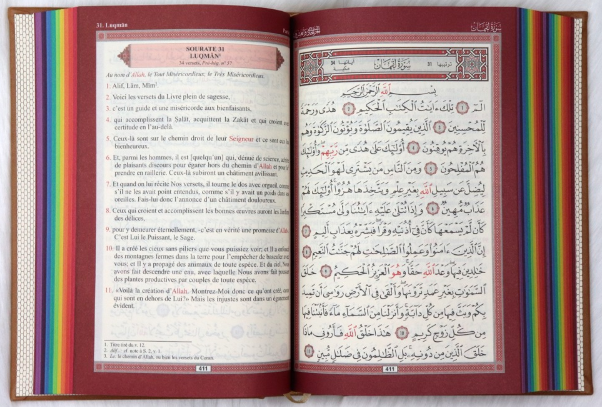 31. Luqmân
SOURATE 31
LUQMÂN¹
34 versets, Pré-hég. n° 57
Au nom d'Allah, le Tout Miséricordieux, le Très Miséricordieux.
1. Alif, Lâm, Mîm².
2. Voici les versets du Livre plein de sagesse,
3. c'est un guide et une miséricorde aux bienfaisants,
4. qui accomplissent la Salât, acquittent la Zakât et qui croient avec
certitude en l'au-delà.
5. Ceux-là sont sur le chemin droit de leur Seigneur et ce sont eux les
bienheureux.
6. Et, parmi les hommes, il est [quelqu'un] qui, dénué de science, achète
de plaisants discours pour égarer hors du chemin d'Allah et pour le
prendre en raillerie. Ceux-là subiront un châtiment avilissant.
7. Et quand on lui récite Nos versets, il tourne le dos avec orgueil, comme
s'il ne les avait point entendus, comme s'il y avait un poids dans ses
oreilles. Fais-lui donc l'annonce d'un châtiment douloureux.
8. Ceux qui croient et accomplissent les bonnes œuvres auront les Jardins
des délices,
9. pour y demeurer éternellement, -c'est en vérité une promesse d'Allah-.
C'est Lui le Puissant, le Sage.
10. Il a créé les cieux sans piliers que vous puissiez voir; et Il a enfoncé
des montagnes fermes dans la terre pour l'empêcher de basculer avec
vous; et Il y a propagé des animaux de toute espèce. Et du ciel, Nous
avons fait descendre une eau, avec laquelle Nous avons fait pousser
des plantes productives par couples de toute espèce.
11. «Voilà la création d'Allah. Montrez-Moi donc ce qu'ont créé, ceux
qui sont en dehors de Lui?» Mais les injustes sont dans un égarement
évident.
1. Titre tiré du v. 12.
411
سورة لقمان
سورة لقمان
بسم الله الرحمن الرحيم
الٓمٓ ١ تِلْكَ ءَايَٰتُ ٱلْكِتَٰبِ ٱلْحَكِيمِ ٢ هُدًى وَرَحْمَةً
لِّلْمُحْسِنِينَ ٣ ٱلَّذِينَ يُقِيمُونَ ٱلصَّلَوٰةَ وَيُؤْتُونَ ٱلزَّكَوٰةَ وَهُم
بِٱلْءَاخِرَةِ هُمْ يُوقِنُونَ ٤ أُو۟لَٰٓئِكَ عَلَىٰ هُدًى مِّن رَّبِّهِمْ وَأُو۟لَٰٓئِكَ
هُمُ ٱلْمُفْلِحُونَ ٥ وَمِنَ ٱلنَّاسِ مَن يَشْتَرِى لَهْوَ ٱلْحَدِيثِ
لِيُضِلَّ عَن سَبِيلِ ٱللَّهِ بِغَيْرِ عِلْمٍ وَيَتَّخِذَهَا هُزُوًا أُو۟لَٰٓئِكَ لَهُمْ
عَذَابٌ مُّهِينٌ ٦ وَإِذَا تُتْلَىٰ عَلَيْهِ ءَايَٰتُنَا وَلَّىٰ مُسْتَكْبِرًا
كَأَن لَّمْ يَسْمَعْهَا كَأَنَّ فِىٓ أُذُنَيْهِ وَقْرًا فَبَشِّرْهُ بِعَذَابٍ أَلِيمٍ ٧
إِنَّ ٱلَّذِينَ ءَامَنُوا۟ وَعَمِلُوا۟ ٱلصَّٰلِحَٰتِ لَهُمْ جَنَّٰتُ ٱلنَّعِيمِ ٨
خَٰلِدِينَ فِيهَا وَعْدَ ٱللَّهِ حَقًّا وَهُوَ ٱلْعَزِيزُ ٱلْحَكِيمُ ٩ خَلَقَ
ٱلسَّمَٰوَٰتِ بِغَيْرِ عَمَدٍ تَرَوْنَهَا وَأَلْقَىٰ فِى ٱلْأَرْضِ رَوَٰسِىَ أَن تَمِيدَ
بِكُمْ وَبَثَّ فِيهَا مِن كُلِّ دَآبَّةٍ وَأَنزَلْنَا مِنَ ٱلسَّمَآءِ مَآءً فَأَنۢبَتْنَا فِيهَا
مِن كُلِّ زَوْجٍ كَرِيمٍ ١٠ هَٰذَا خَلْقُ ٱللَّهِ فَأَرُونِى مَاذَا
خَلَقَ ٱلَّذِينَ مِن دُونِهِۦ بَلِ ٱلظَّٰلِمُونَ فِى ضَلَٰلٍ مُّبِينٍ ١١
411